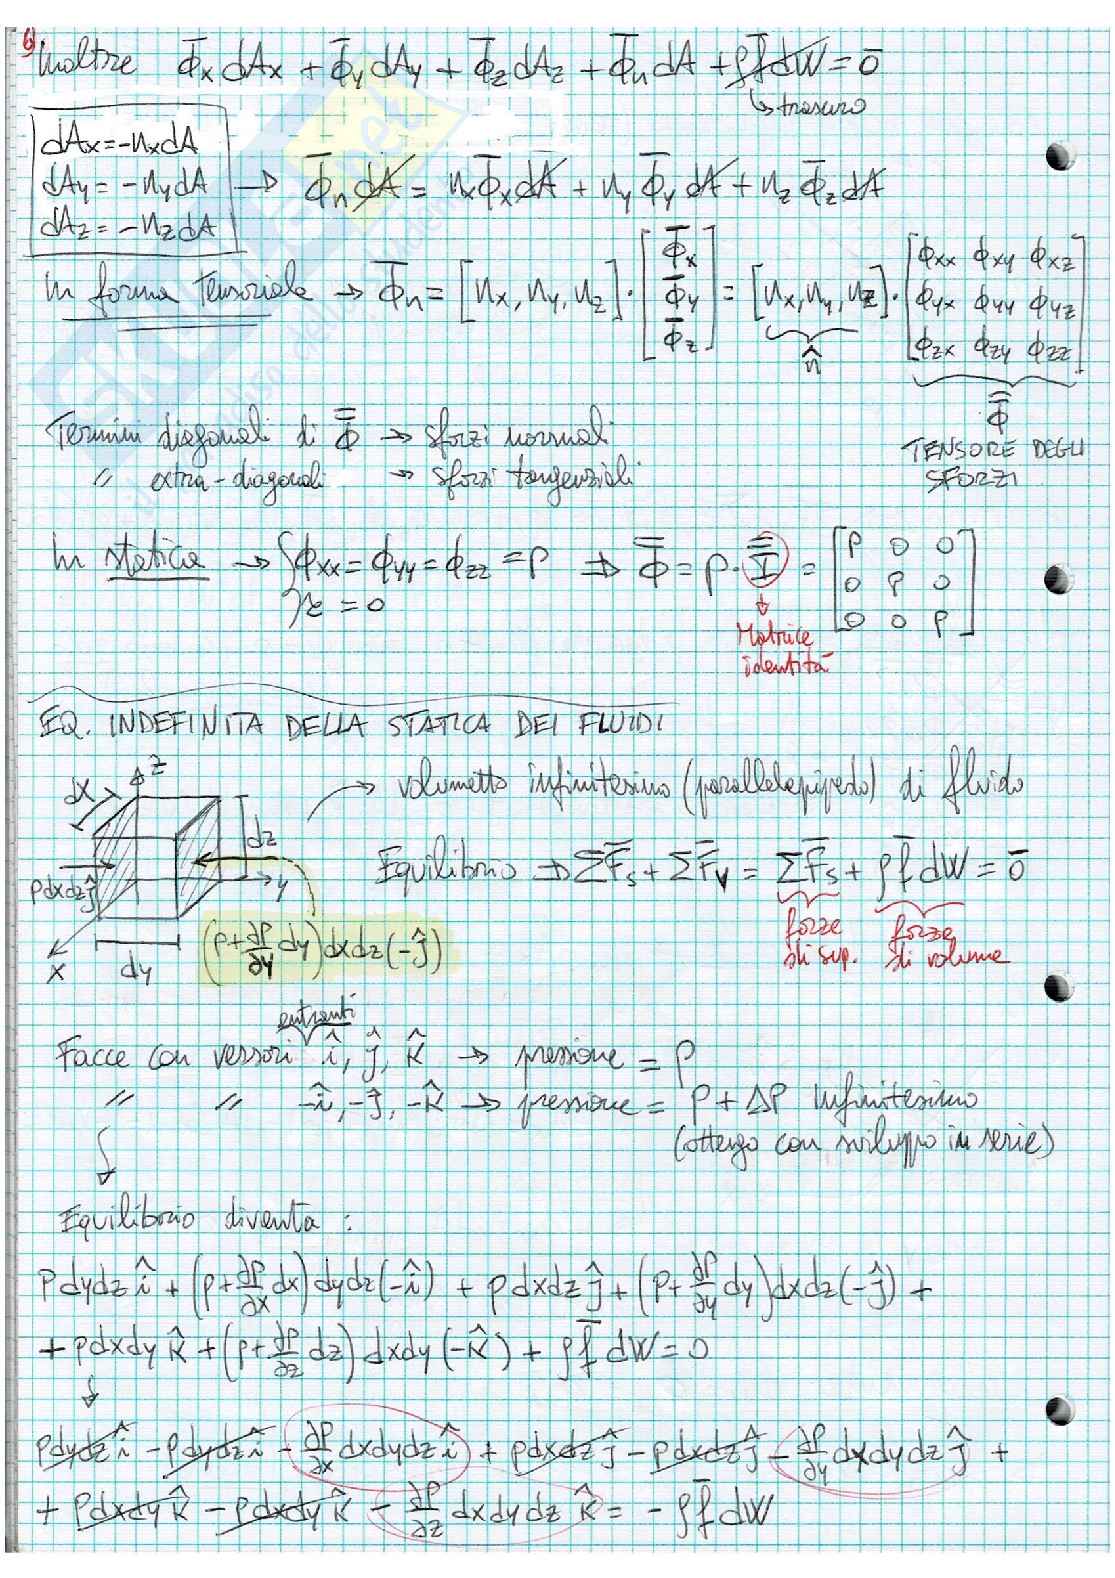 6
Inoltre Φ̄x dAx + Φ̄y dAy + Φ̄z dAz + Φ̄n dA + ρf̄dW = 0̄
↳ trascuro
dAx = -nx dA
dAy = -ny dA → Φ̄n dA = nx Φ̄x dA + ny Φ̄y dA + nz Φ̄z dA
dAz = -nz dA
In forma tensoriale → Φ̄n = [nx, ny, nz] · [Φ̄x Φ̄y Φ̄z] = [nx, ny, nz] · [ϕxx ϕxy ϕxz
ϕyx ϕyy ϕyz
ϕzx ϕzy ϕzz]
n̂
Φ̿
TENSORE DEGLI
SFORZI
Termini diagonali di Φ̿ → sforzi normali
〃 extra-diagonali → sforzi tangenziali
In statica → { ϕxx = ϕyy = ϕzz = p ⇒ Φ̿ = p · I̿ = [p 0 0
τ = 0
0 p 0
0 0 p]
Matrice
identità
EQ. INDEFINITA DELLA STATICA DEI FLUIDI
→ volumetto infinitesimo (parallelepipedo) di fluido
z
dx
dz
pdxdz ĵ
y
x
dy
(p+∂p/∂y dy)dxdz(-ĵ)
Equilibrio ⇒ ΣF̄s + ΣF̄v = ΣF̄s + ρf̄dW = 0̄
forze
di sup.
forze
di volume
entranti
Facce con versori î, ĵ, k̂ → pressione = p
〃 〃 -î, -ĵ, -k̂ → pressione = p + Δp infinitesimo
(ottengo con sviluppo in serie)
Equilibrio diventa :
pdydz î + (p+∂p/∂x dx)dydz(-î) + pdxdz ĵ + (p+∂p/∂y dy)dxdz(-ĵ) +
+ pdxdy k̂ + (p+∂p/∂z dz) dxdy (-k̂) + ρf̄ dW = 0
pdydz î - pdydz î - ∂p/∂x dxdydz î + pdxdz ĵ - pdxdz ĵ - ∂p/∂y dxdydz ĵ +
+ pdxdy k̂ - pdxdy k̂ - ∂p/∂z dxdydz k̂ = - ρf̄ dW